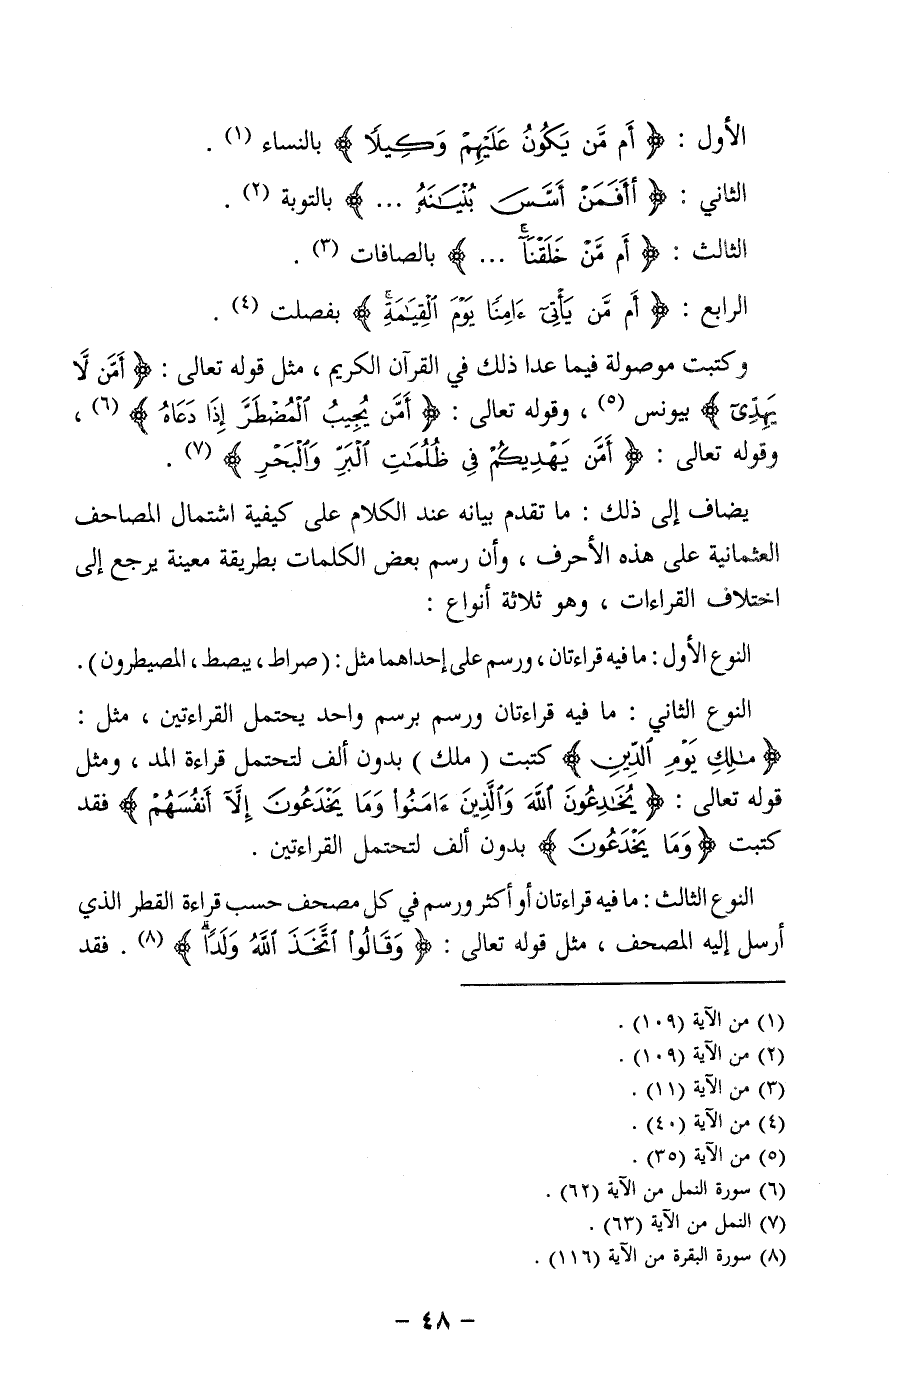 الأول : ﴿ أَم مَّن يَكُونُ عَلَيْهِمْ وَكِيلًا ﴾ بالنساء (١) .
الثاني : ﴿ أَفَمَنْ أَسَّسَ بُنْيَـٰنَهُۥ ... ﴾ بالتوبة (٢) .
الثالث : ﴿ أَم مَّنْ خَلَقْنَآ ۚ ... ﴾ بالصافات (٣) .
الرابع : ﴿ أَم مَّن يَأْتِىٓ ءَامِنًا يَوْمَ ٱلْقِيَـٰمَةِ ۚ ﴾ بفصلت (٤) .
وكتبت موصولة فيما عدا ذلك في القرآن الكريم ، مثل قوله تعالى : ﴿ أَمَّن لَّا
يَهِدِّىٓ ﴾ بيونس (٥) ، وقوله تعالى : ﴿ أَمَّن يُجِيبُ ٱلْمُضْطَرَّ إِذَا دَعَاهُ ﴾ (٦) ،
وقوله تعالى : ﴿ أَمَّن يَهْدِيكُمْ فِى ظُلُمَـٰتِ ٱلْبَرِّ وَٱلْبَحْرِ ﴾ (٧) .
يضاف إلى ذلك : ما تقدم بيانه عند الكلام على كيفية اشتمال المصاحف
العثمانية على هذه الأحرف ، وأن رسم بعض الكلمات بطريقة معينة يرجع إلى
اختلاف القراءات ، وهو ثلاثة أنواع :
النوع الأول : ما فيه قراءتان ، ورسم على إحداهما مثل : (صراط ، يبصط ، المصيطرون) .
النوع الثاني : ما فيه قراءتان ورسم برسم واحد يحتمل القراءتين ، مثل :
﴿ مَـٰلِكِ يَوْمِ ٱلدِّينِ ﴾ كتبت ( ملك ) بدون ألف لتحتمل قراءة المد ، ومثل
قوله تعالى : ﴿ يُخَـٰدِعُونَ ٱللَّهَ وَٱلَّذِينَ ءَامَنُوا۟ وَمَا يَخْدَعُونَ إِلَّآ أَنفُسَهُمْ ﴾ فقد
كتبت ﴿ وَمَا يَخْدَعُونَ ﴾ بدون ألف لتحتمل القراءتين .
النوع الثالث : ما فيه قراءتان أو أكثر ورسم في كل مصحف حسب قراءة القطر الذي
أرسل إليه المصحف ، مثل قوله تعالى : ﴿ وَقَالُوا۟ ٱتَّخَذَ ٱللَّهُ وَلَدًا ۗ ﴾ (٨) . فقد
(١) من الآية (١٠٩) .
(٢) من الآية (١٠٩) .
(٣) من الآية (١١) .
(٤) من الآية (٤٠) .
(٥) من الآية (٣٥) .
(٦) سورة النمل من الآية (٦٢) .
(٧) النمل من الآية (٦٣) .
(٨) سورة البقرة من الآية (١١٦) .
- ٤٨ -